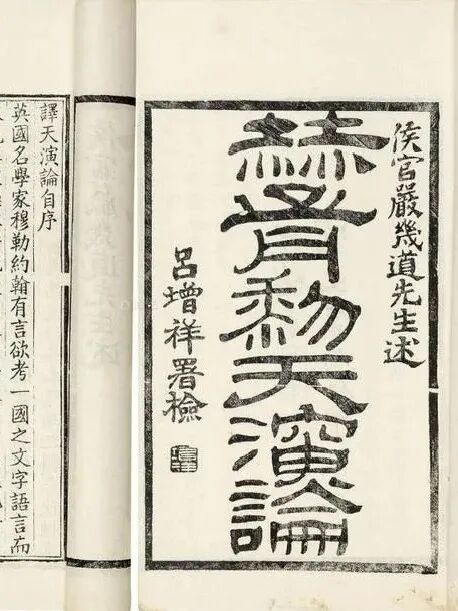 侯官嚴幾道先生述
赫胥黎天演論
呂增祥署檢
譯天演論自序
英國名學家穆勒約翰有言欲考一國之文字語言而